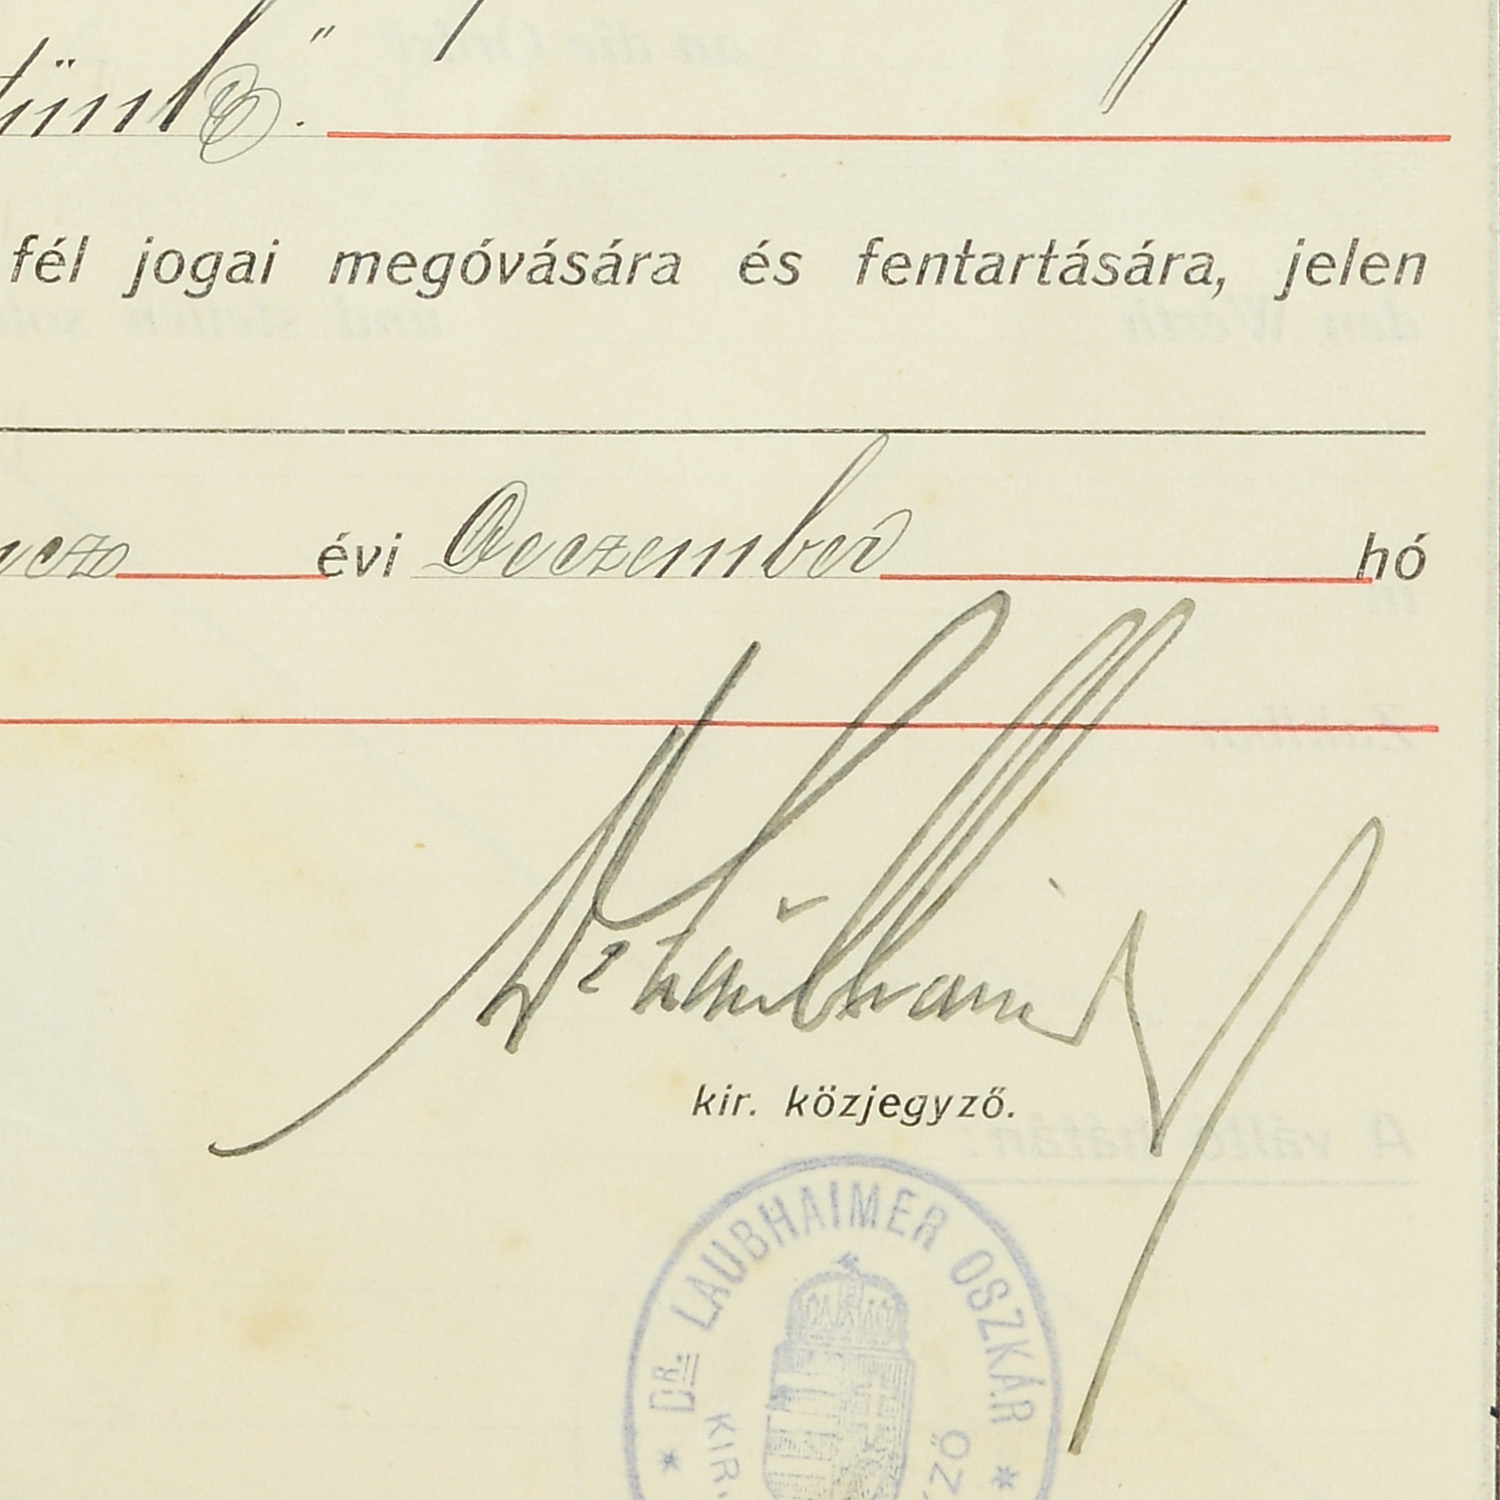 fél jogai megóvására és fentartására, jelen
évi Deczember hó
Dr Laubhaimer
kir. közjegyző.
* DR. LAUBHAIMER OSZKÁR *
KIR.